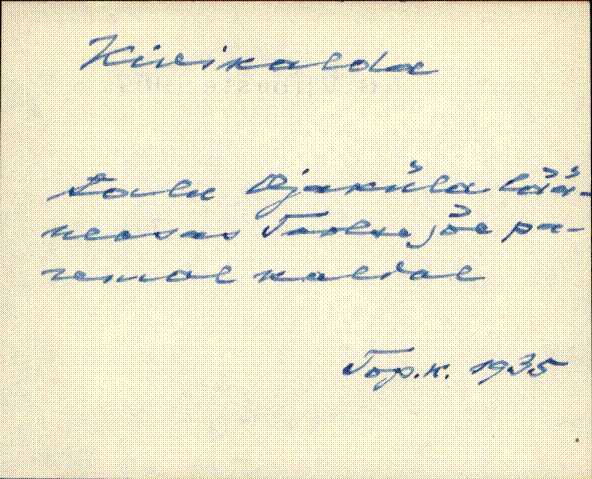 Kivikalda
talu Ojaküla lää-
neosas Toolse jõe pa-
remal kaldal
Top.k. 1935